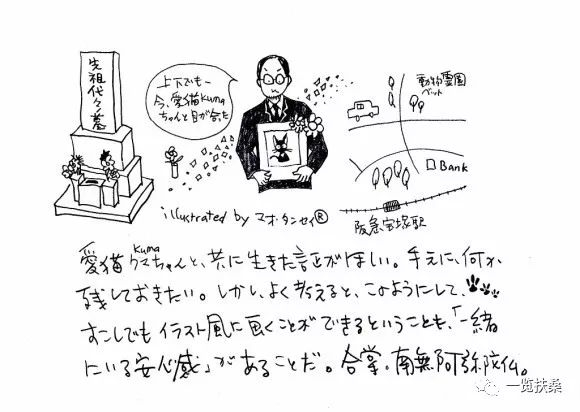 先祖代々墓
上下でも一
今、愛猫Kuma
ちゃんと目が合った
動物霊園
ペット
Bank
阪急宝塚駅
illustrated by マオ・タンセイ®
愛猫クマKumaちゃんと、共に生きた証がほしい。手元に、何か
残しておきたい。しかし、よく考えると、このようにして、
すこしでもイラスト風に画くことができるということも、「一緒
にいる安心感」があることだ。合掌。南無阿弥陀仏。
一览扶桑